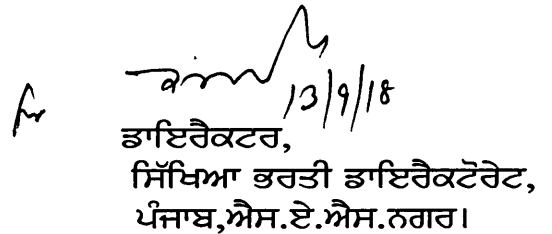 13/9/18
ਡਾਇਰੈਕਟਰ,
ਸਿੱਖਿਆ ਭਰਤੀ ਡਾਇਰੈਕਟੋਰੇਟ,
ਪੰਜਾਬ,ਐਸ.ਏ.ਐਸ.ਨਗਰ।